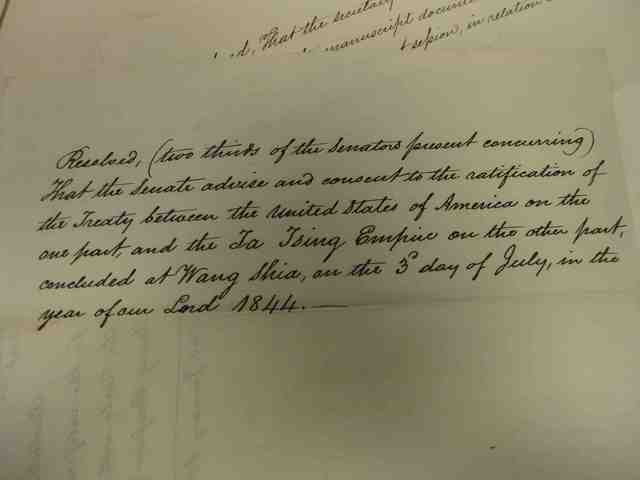 d, That the secretary
manuscript docume
session, in relation
Resolved, (two thirds of the Senators present concurring)
That the Senate advise and consent to the ratification of
the Treaty between the United States of America on the
one part, and the Ta Tsing Empire on the other part,
concluded at Wang Shia, on the 3d day of July, in the
year of our Lord 1844.—